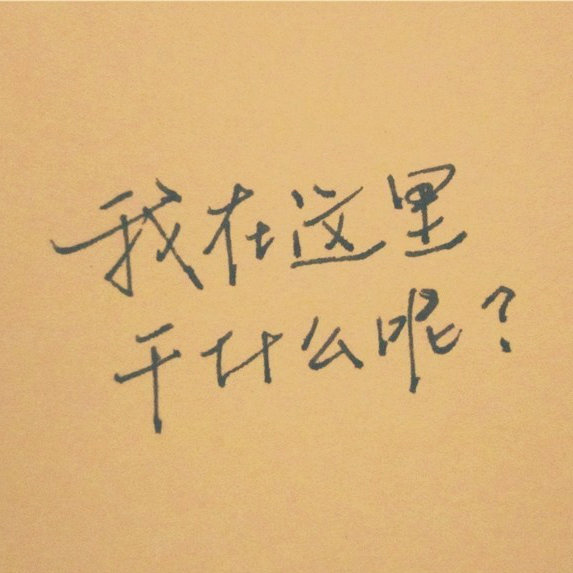 我在这里
干什么呢？